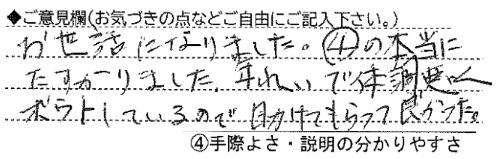 ◆ご意見欄(お気づきの点などご自由にご記入下さい。)
お世話になりました。④の本当に
たすかりました、年れいで体調悪く
ボウトしているので助けてもらって良かった。
④手際よさ・説明の分かりやすさ